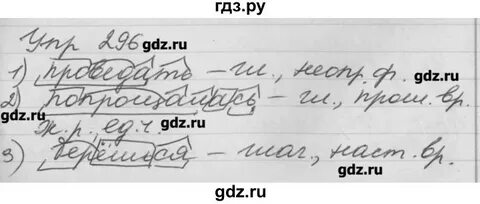 гдз.ру
Упр 296 gdz.ru
gdz.ru
1) проведать – гл., неопр. ф.
gdz.ru
2) попрощалась – гл., прош. вр.
ж. р., ед. ч. gdz.ru
3) берёшься – глаг., наст. вр.
gdz.ru
gdz.ru